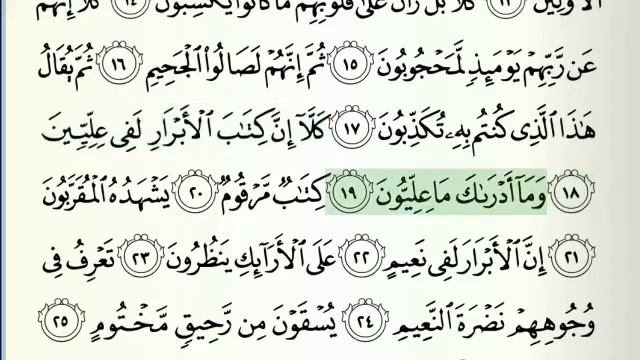 الأولين ١٣ كلا بل ران على قلوبهم ما كانوا يكسبون ١٤ كلا إنهم
عَن رَّبِّهِمْ يَوْمَئِذٍ لَّمَحْجُوبُونَ ١٥ ثُمَّ إِنَّهُمْ لَصَالُوا۟ الْجَحِيمِ ١٦ ثُمَّ يُقَالُ
هَٰذَا الَّذِى كُنتُم بِهِۦ تُكَذِّبُونَ ١٧ كَلَّآ إِنَّ كِتَٰبَ الْأَبْرَارِ لَفِى عِلِّيِّينَ
١٨ وَمَآ أَدْرَىٰكَ مَا عِلِّيُّونَ ١٩ كِتَٰبٌ مَّرْقُومٌ ٢٠ يَشْهَدُهُ الْمُقَرَّبُونَ
٢١ إِنَّ الْأَبْرَارَ لَفِى نَعِيمٍ ٢٢ عَلَى الْأَرَآئِكِ يَنظُرُونَ ٢٣ تَعْرِفُ فِى
وُجُوهِهِمْ نَضْرَةَ النَّعِيمِ ٢٤ يُسْقَوْنَ مِن رَّحِيقٍ مَّخْتُومٍ ٢٥